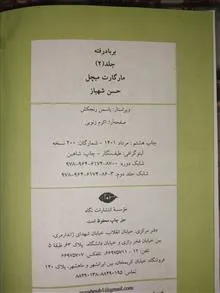 بربادرفته
جلد(۲)
مارگارت میچل
حسن شهباز
ویراستار: یاسمن رنجکش
صفحه‌آرا: اکرم زنوبی
چاپ هشتم: مرداد ۱۴۰۱ - شمارگان: ۲۰۰ نسخه
لیتوگرافی: طیف‌نگار - چاپ: شاهین
شابک دوره: ۰-۸۷-۶۱۷۴-۹۶۴-۹۷۸
شابک جلد دوم: ۳-۸۶-۶۱۷۴-۹۶۴-۹۷۸
مؤسسهٔ انتشارات نگاه
حق چاپ محفوظ است
دفتر مرکزی: خیابان انقلاب، خیابان شهدای ژاندارمری،
بین خیابان فخر رازی و خیابان دانشگاه، پلاک ۶۳ طبقهٔ ۵
فروشگاه: خیابان کریم‌خان، بین ایرانشهر و ماهشهر، پلاک ۱۴۰